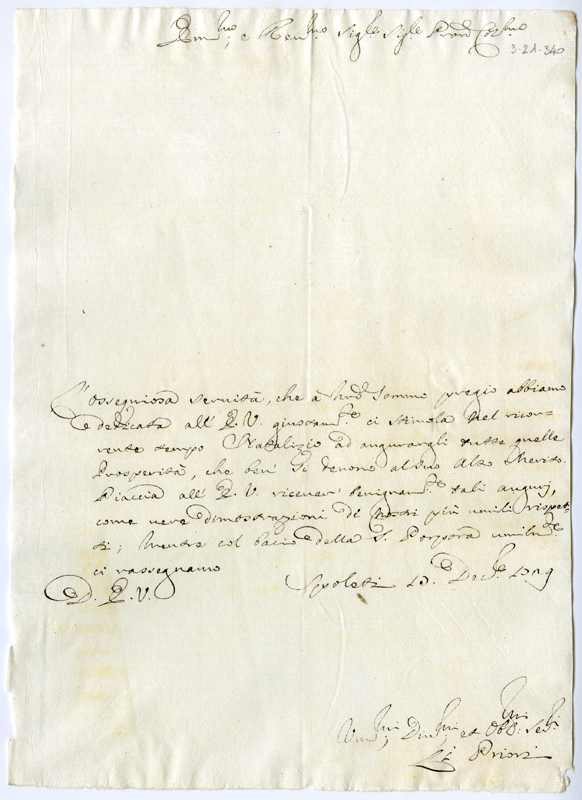 Em.mo, e Reu.mo Sig.re Sig.re Pron Col.mo
3-21-340
L'ossequiosa seruitù, che a nro sommo pregio abbiamo
dedicata all' E. V. giustam.te ci stimola nel ricor-
rente tempo Natalizio ad augurargli tutte quelle
Prosperità, che ben si deuono al suo alto Merito.
Piaccia all' E. V. riceuer benignam.te tali augurj,
come uere dimostrazioni de nostri più umili rispet-
ti; mentre col bacio della S. Porpora umilm.te
ci rassegnamo
D. E. V. Spoleti
Um.mi, Diu.mi et Obb.mi Ser.i
Li Priori